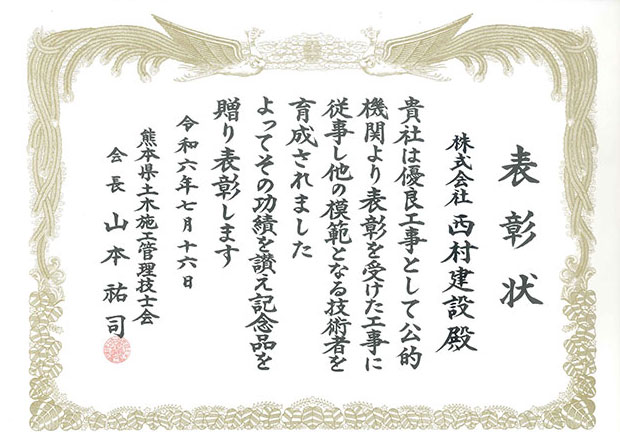 表彰状
株式会社 西村建設殿
貴社は優良工事として公的
機関より表彰を受けた工事に
従事し他の模範となる技術者を
育成されました
よってその功績を讃え記念品を
贈り表彰します
令和六年七月十六日
熊本県土木施工管理技士会
会長 山本祐司